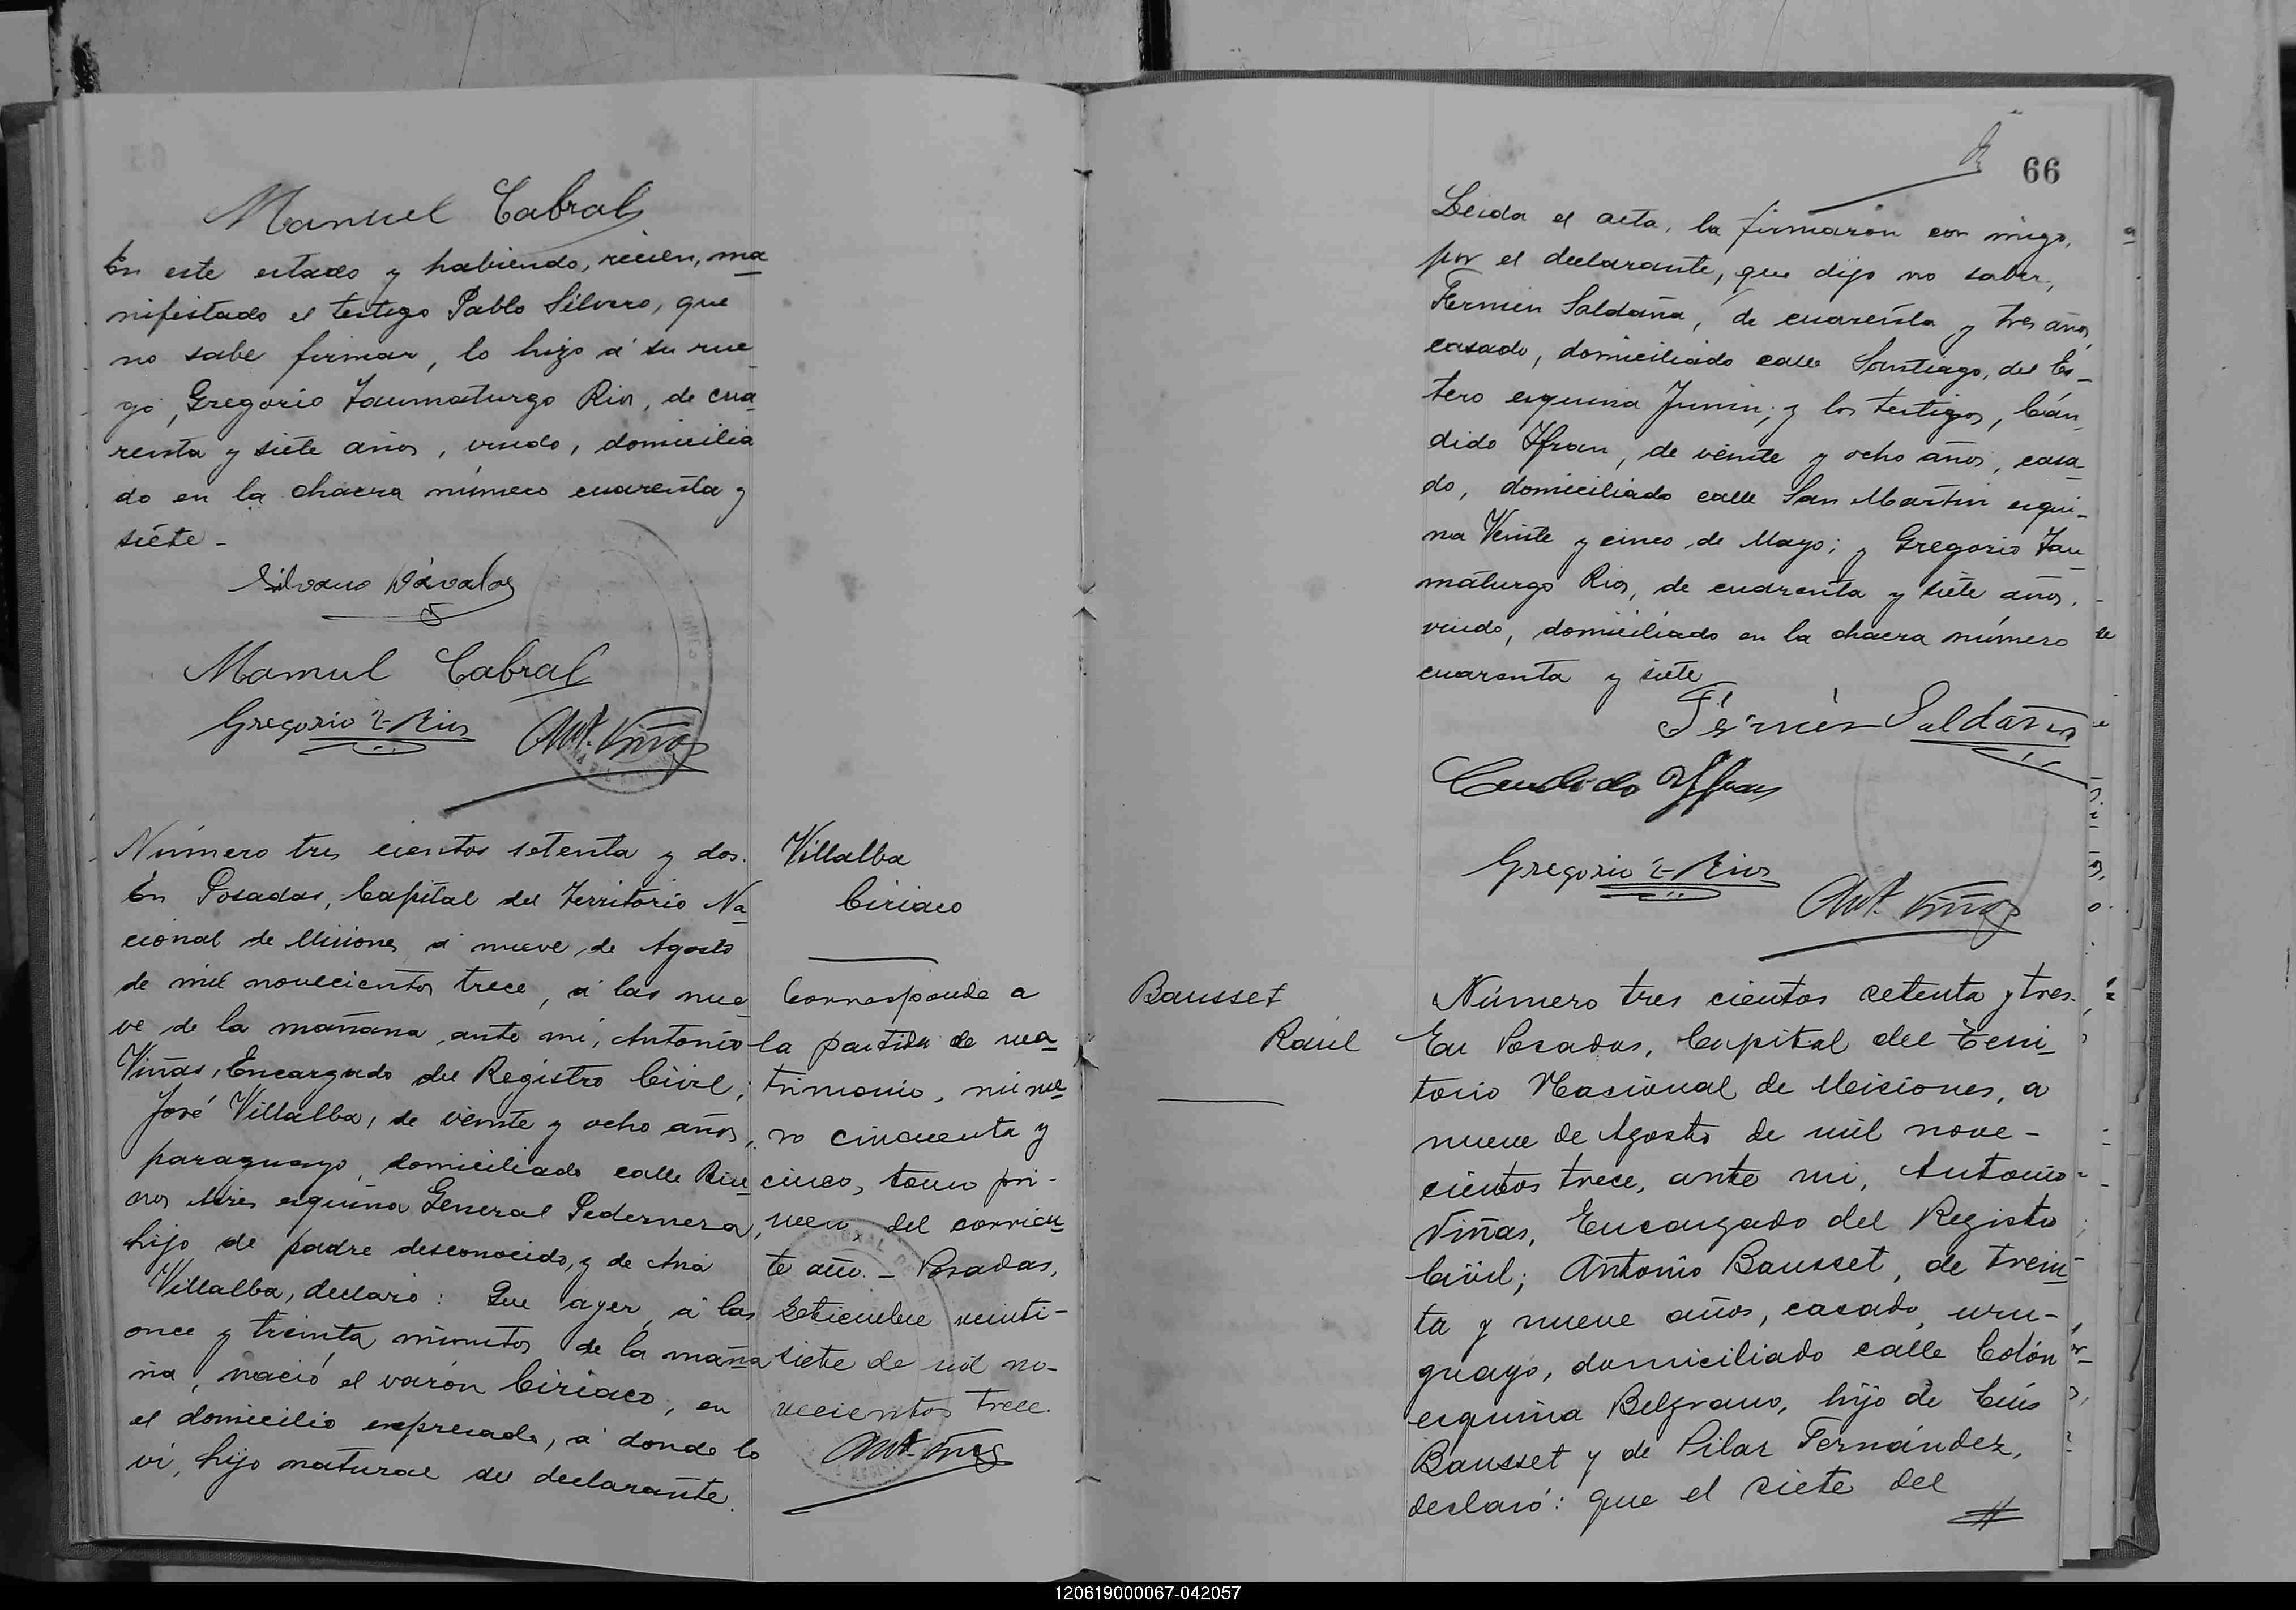 Manuel Cabral
En este estado y habiendo, recien, ma
nifestado el testigo Pablo Silvero, que
no sabe firmar, lo hizo á su rue
go, Gregorio Taumaturgo Rios, de cua
renta y siete años, viudo, domicilia
do en la chacra número cuarenta y
siete -
Silvano Dávalos
Manuel Cabral
Gregorio T. Rios Ant. Viñas
Número tres cientos setenta y dos.
En Posadas, Capital del Territorio Na
cional de Misiones á nueve de Agosto
de mil novecientos trece, á las nue
ve de la mañana, ante mi, Antonio
Viñas, Encargado del Registro Civil;
José Villalba, de veinte y ocho años,
paraguayo, domiciliado calle Bue
nos Aires esquina General Pedernera,
hijo de padre desconocido, y de Ana
Villalba, declaró: Que ayer, á las
once y treinta minutos de la maña
na, nació el varón Ciriaco, en
el domicilio expresado, á donde lo
vi, hijo natural del declarante.
Villalba
Ciriaco
Corresponde a
la partida de ma
trimonio, núme
ro cincuenta y
cinco, tomo pri-
mero del corrien
te año. - Posadas,
Setiembre veinti-
siete de mil no-
vecientos trece.
Ant. Viñas
66
Leida el acta, la firmaron con migo,
por el declarante, que dijo no saber,
Fermin Saldaña, de cuarenta y tres años,
casado, domiciliado calle Santiago, del Es-
tero esquina Junin; y los testigos, Cán
dido Ifran, de veinte y ocho años, casa
do, domiciliado calle San Martin esqui-
na Veinte y cinco de Mayo; y Gregorio Tau
maturgo Rios, de cuarenta y siete años,
viudo, domiciliado en la chacra número
cuarenta y siete
Fermin Saldaña
Candido Iffran
Gregorio T. Rios
Ant. Viñas
Bausset
Raúl
Número tres cientos setenta y tres.
En Posadas, Capital del Terri-
torio Nacional de Misiones, a
nueve de Agosto de mil nove-
cientos trece, ante mi, Antonio
Viñas, Encargado del Registro
Civil; Antonio Bausset, de trein
ta y nueve años, casado, uru-
guayo, domiciliado calle Colón
esquina Belgrano, hijo de Luis
Bausset y de Pilar Fernández,
declaró: que el siete del
120619000067-042057